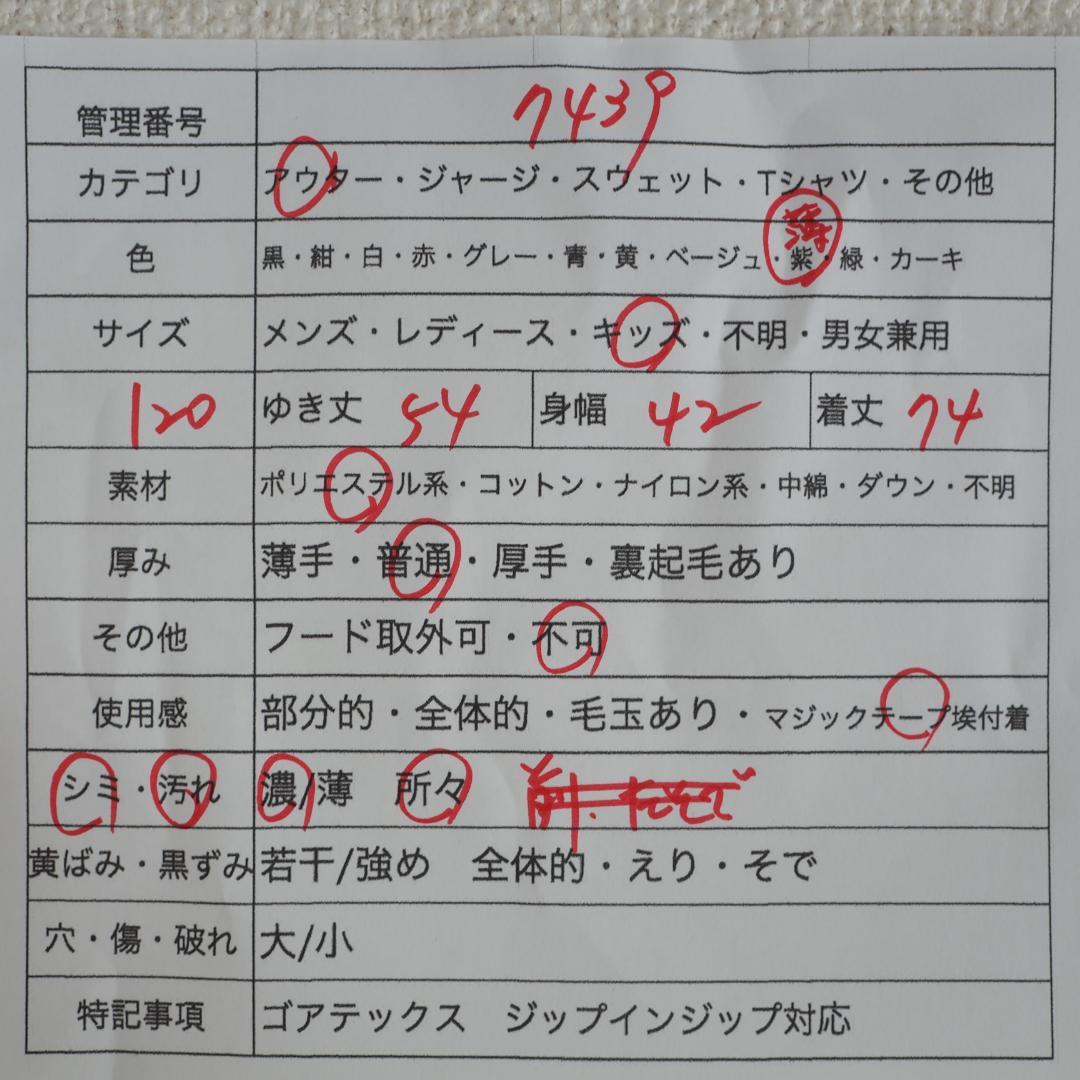 管理番号 7439
カテゴリ アウター・ジャージ・スウェット・Tシャツ・その他
薄
色 黒・紺・白・赤・グレー・青・黄・ベージュ・紫・緑・カーキ
サイズ メンズ・レディース・キッズ・不明・男女兼用
120 ゆき丈 54 身幅 42 着丈 74
素材 ポリエステル系・コットン・ナイロン系・中綿・ダウン・不明
厚み 薄手・普通・厚手・裏起毛あり
その他 フード取外可・不可
使用感 部分的・全体的・毛玉あり・マジックテープ埃付着
シミ・汚れ 濃/薄 所々
黄ばみ・黒ずみ 若干/強め 全体的・えり・そで
穴・傷・破れ 大/小
特記事項 ゴアテックス ジップインジップ対応